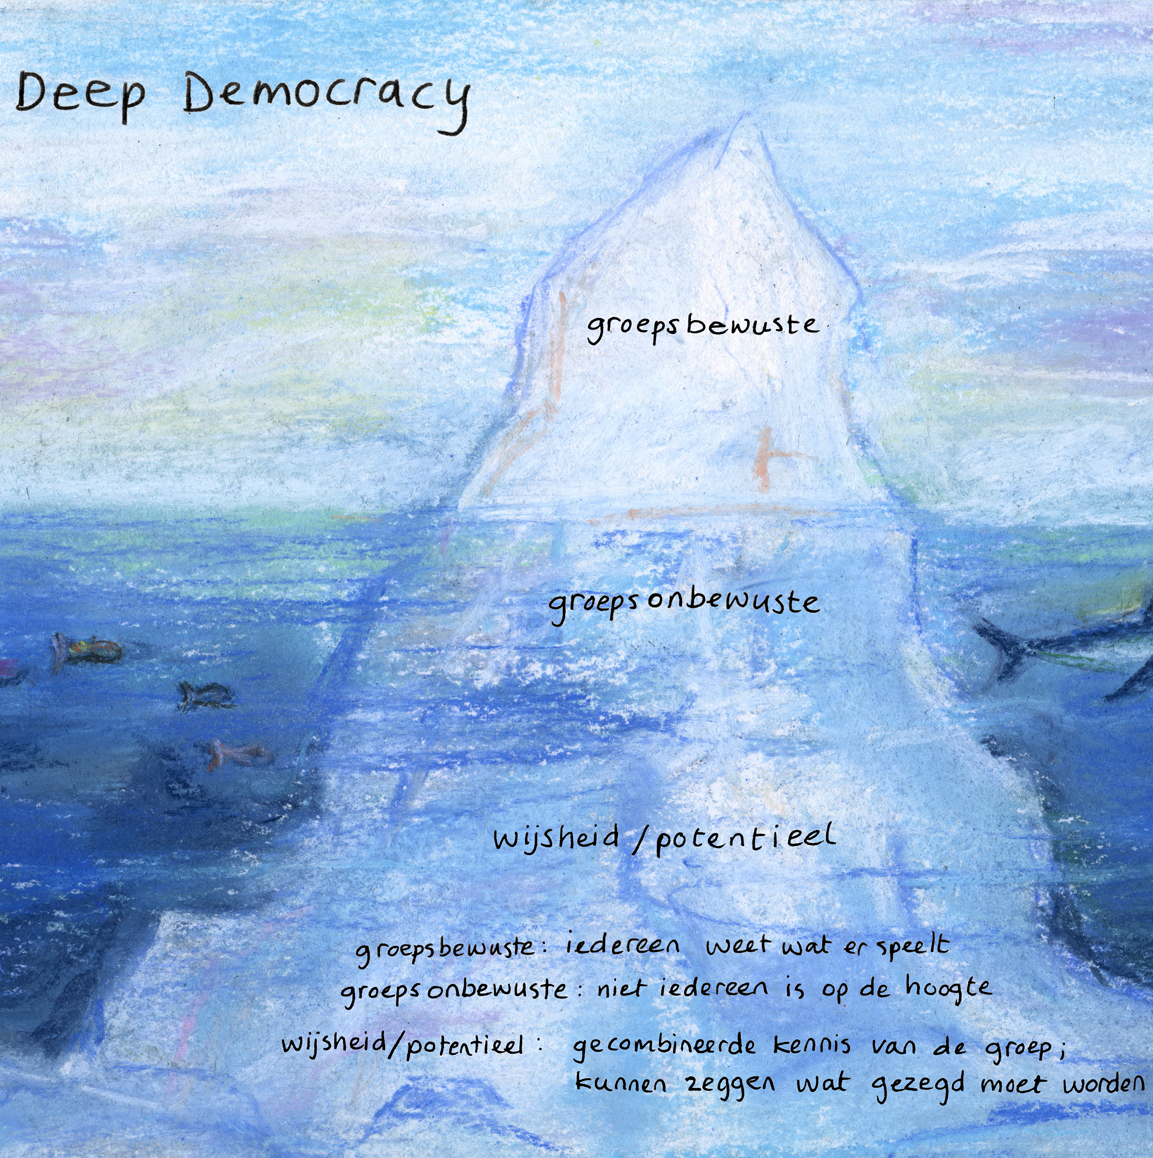 Deep Democracy
groepsbewuste
groepsonbewuste
wijsheid/potentieel
groepsbewuste: iedereen weet wat er speelt
groepsonbewuste: niet iedereen is op de hoogte
wijsheid/potentieel: gecombineerde kennis van de groep;
kunnen zeggen wat gezegd moet worden